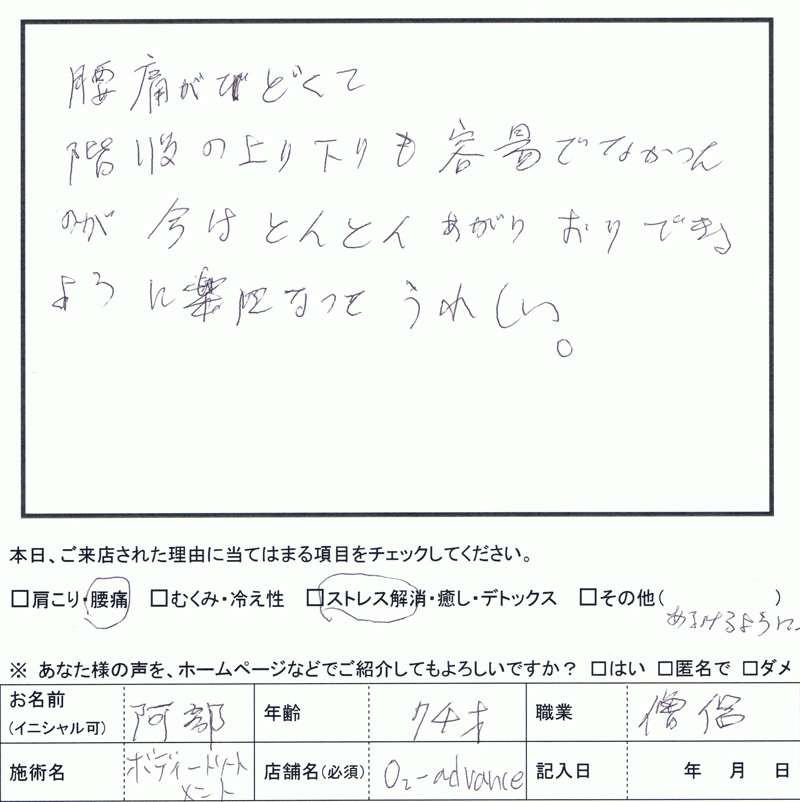 腰痛がひどくて
階段の上り下りも容易でなかった
のが 今はとんとんあがりおりできる
ように楽になってうれしい。
本日、ご来店された理由に当てはまる項目をチェックしてください。
□肩こり・腰痛 □むくみ・冷え性 □ストレス解消・癒し・デトックス □その他( )
あるけるように
※ あなた様の声を、ホームページなどでご紹介してもよろしいですか? □はい □匿名で □ダメ
お名前 (イニシャル可) 阿部 年齢 74才 職業 僧侶
施術名 ボディートリートメント 店舗名(必須) O2-advance 記入日 年 月 日